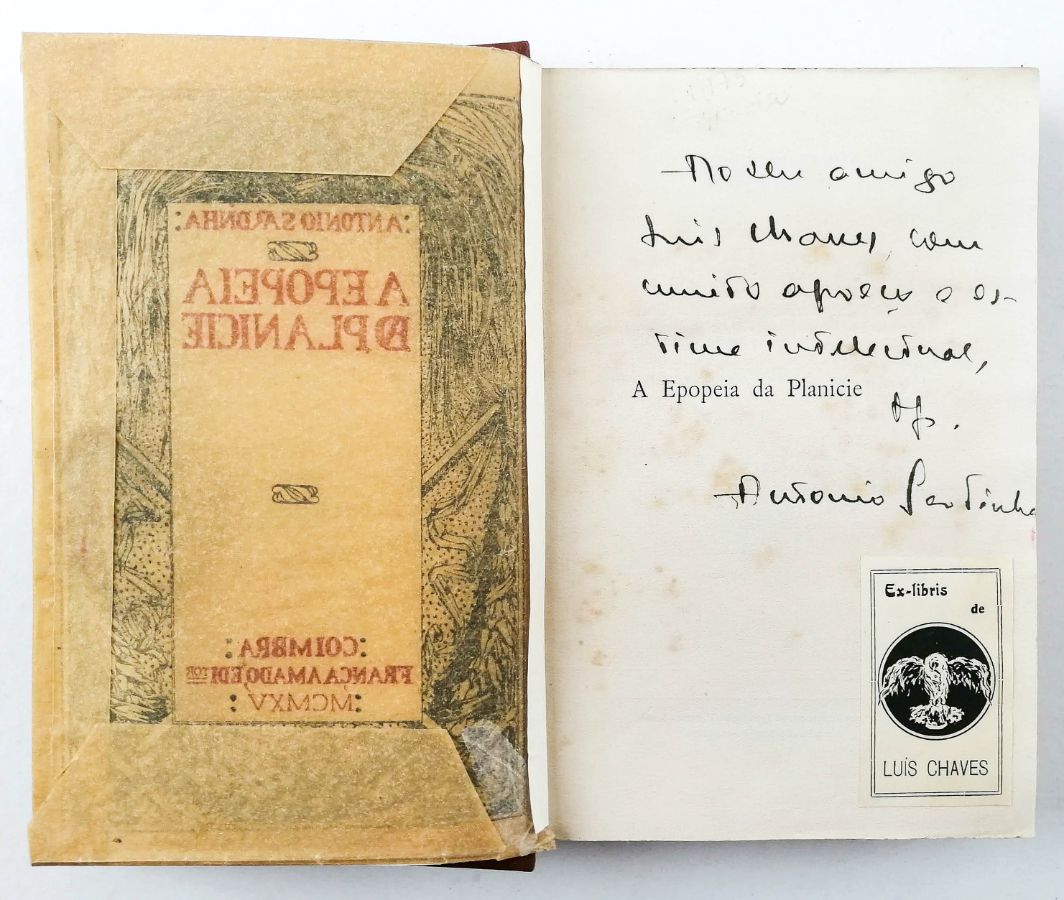 : ANTONIO SARDINHA :
A EPOPEIA
DA PLANICIE
: COIMBRA :
FRANÇA AMADO, EDITOR
: MCMXV :
Ao seu amigo
Luis Chaves, com
muito apreço e es-
tima intelectual,
A Epopeia da Planicie
Antonio Sardinha
Ex-libris
de
LUÍS CHAVES